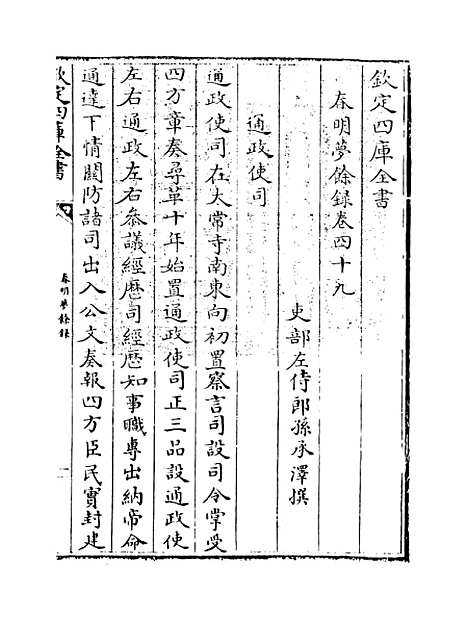 欽定四庫全書
春明夢餘錄卷四十九
吏部左侍郎孫承澤撰
通政使司
通政使司在太常寺南東向初置察言司設司令掌受
四方章奏尋革十年始置通政使司正三品設通政使
左右通政左右叅議經歷司經歷知事職專出納帝命
通達下情關防諸司出入公文奏報四方臣民實封建
欽定四庫全書
春明夢餘錄
一